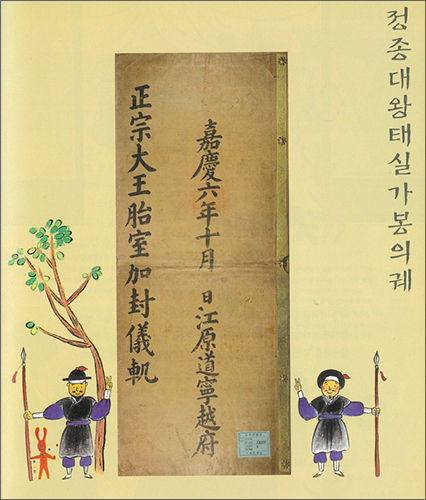 정종대왕태실가봉의궤
嘉慶六年十月 日江原道寧越府
正宗大王胎室加封儀軌